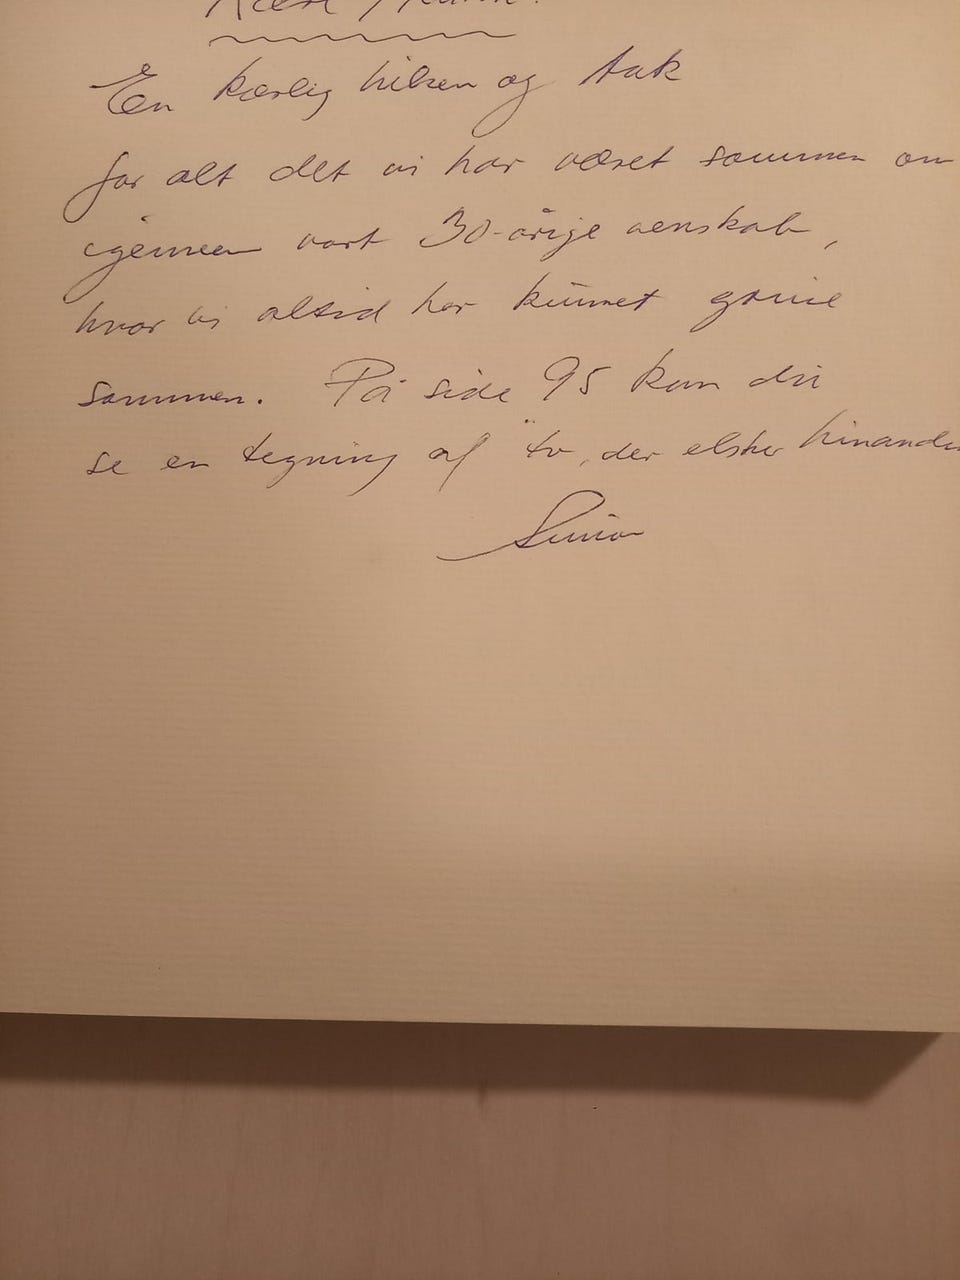 Kære
En kærlig hilsen og tak
for alt det vi har været sammen om
igennem vort 30-årige venskab,
hvor vi altid har kunnet grine
sammen. På side 95 kan du
se en tegning af "to, der elsker hinanden
Simon